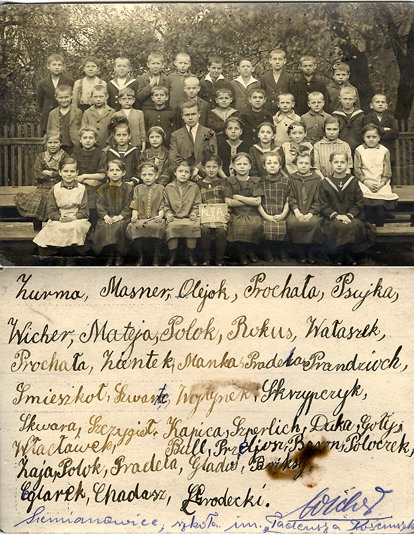 IVA
Zurma, Masner, Olejok, Prochała, Psujka,
Wicher, Mateja, Polok, Rokus, Wałaszek,
Prochała, Zientek, Manka, Pradela, Prandzioch,
Śmieszkoł, Szwarc, Wojtynek, Skrzypczyk,
Skwara, Szczygioł, Kapica, Szperlich, Duka, Gołys,
Włacławek, Bull, Baron, Polocrek,
Zaja, Polok, Pradela, Glados,
Cglarek, Chadasz, Brodecki.
Siemianowice, szkoła im. Tadeusza